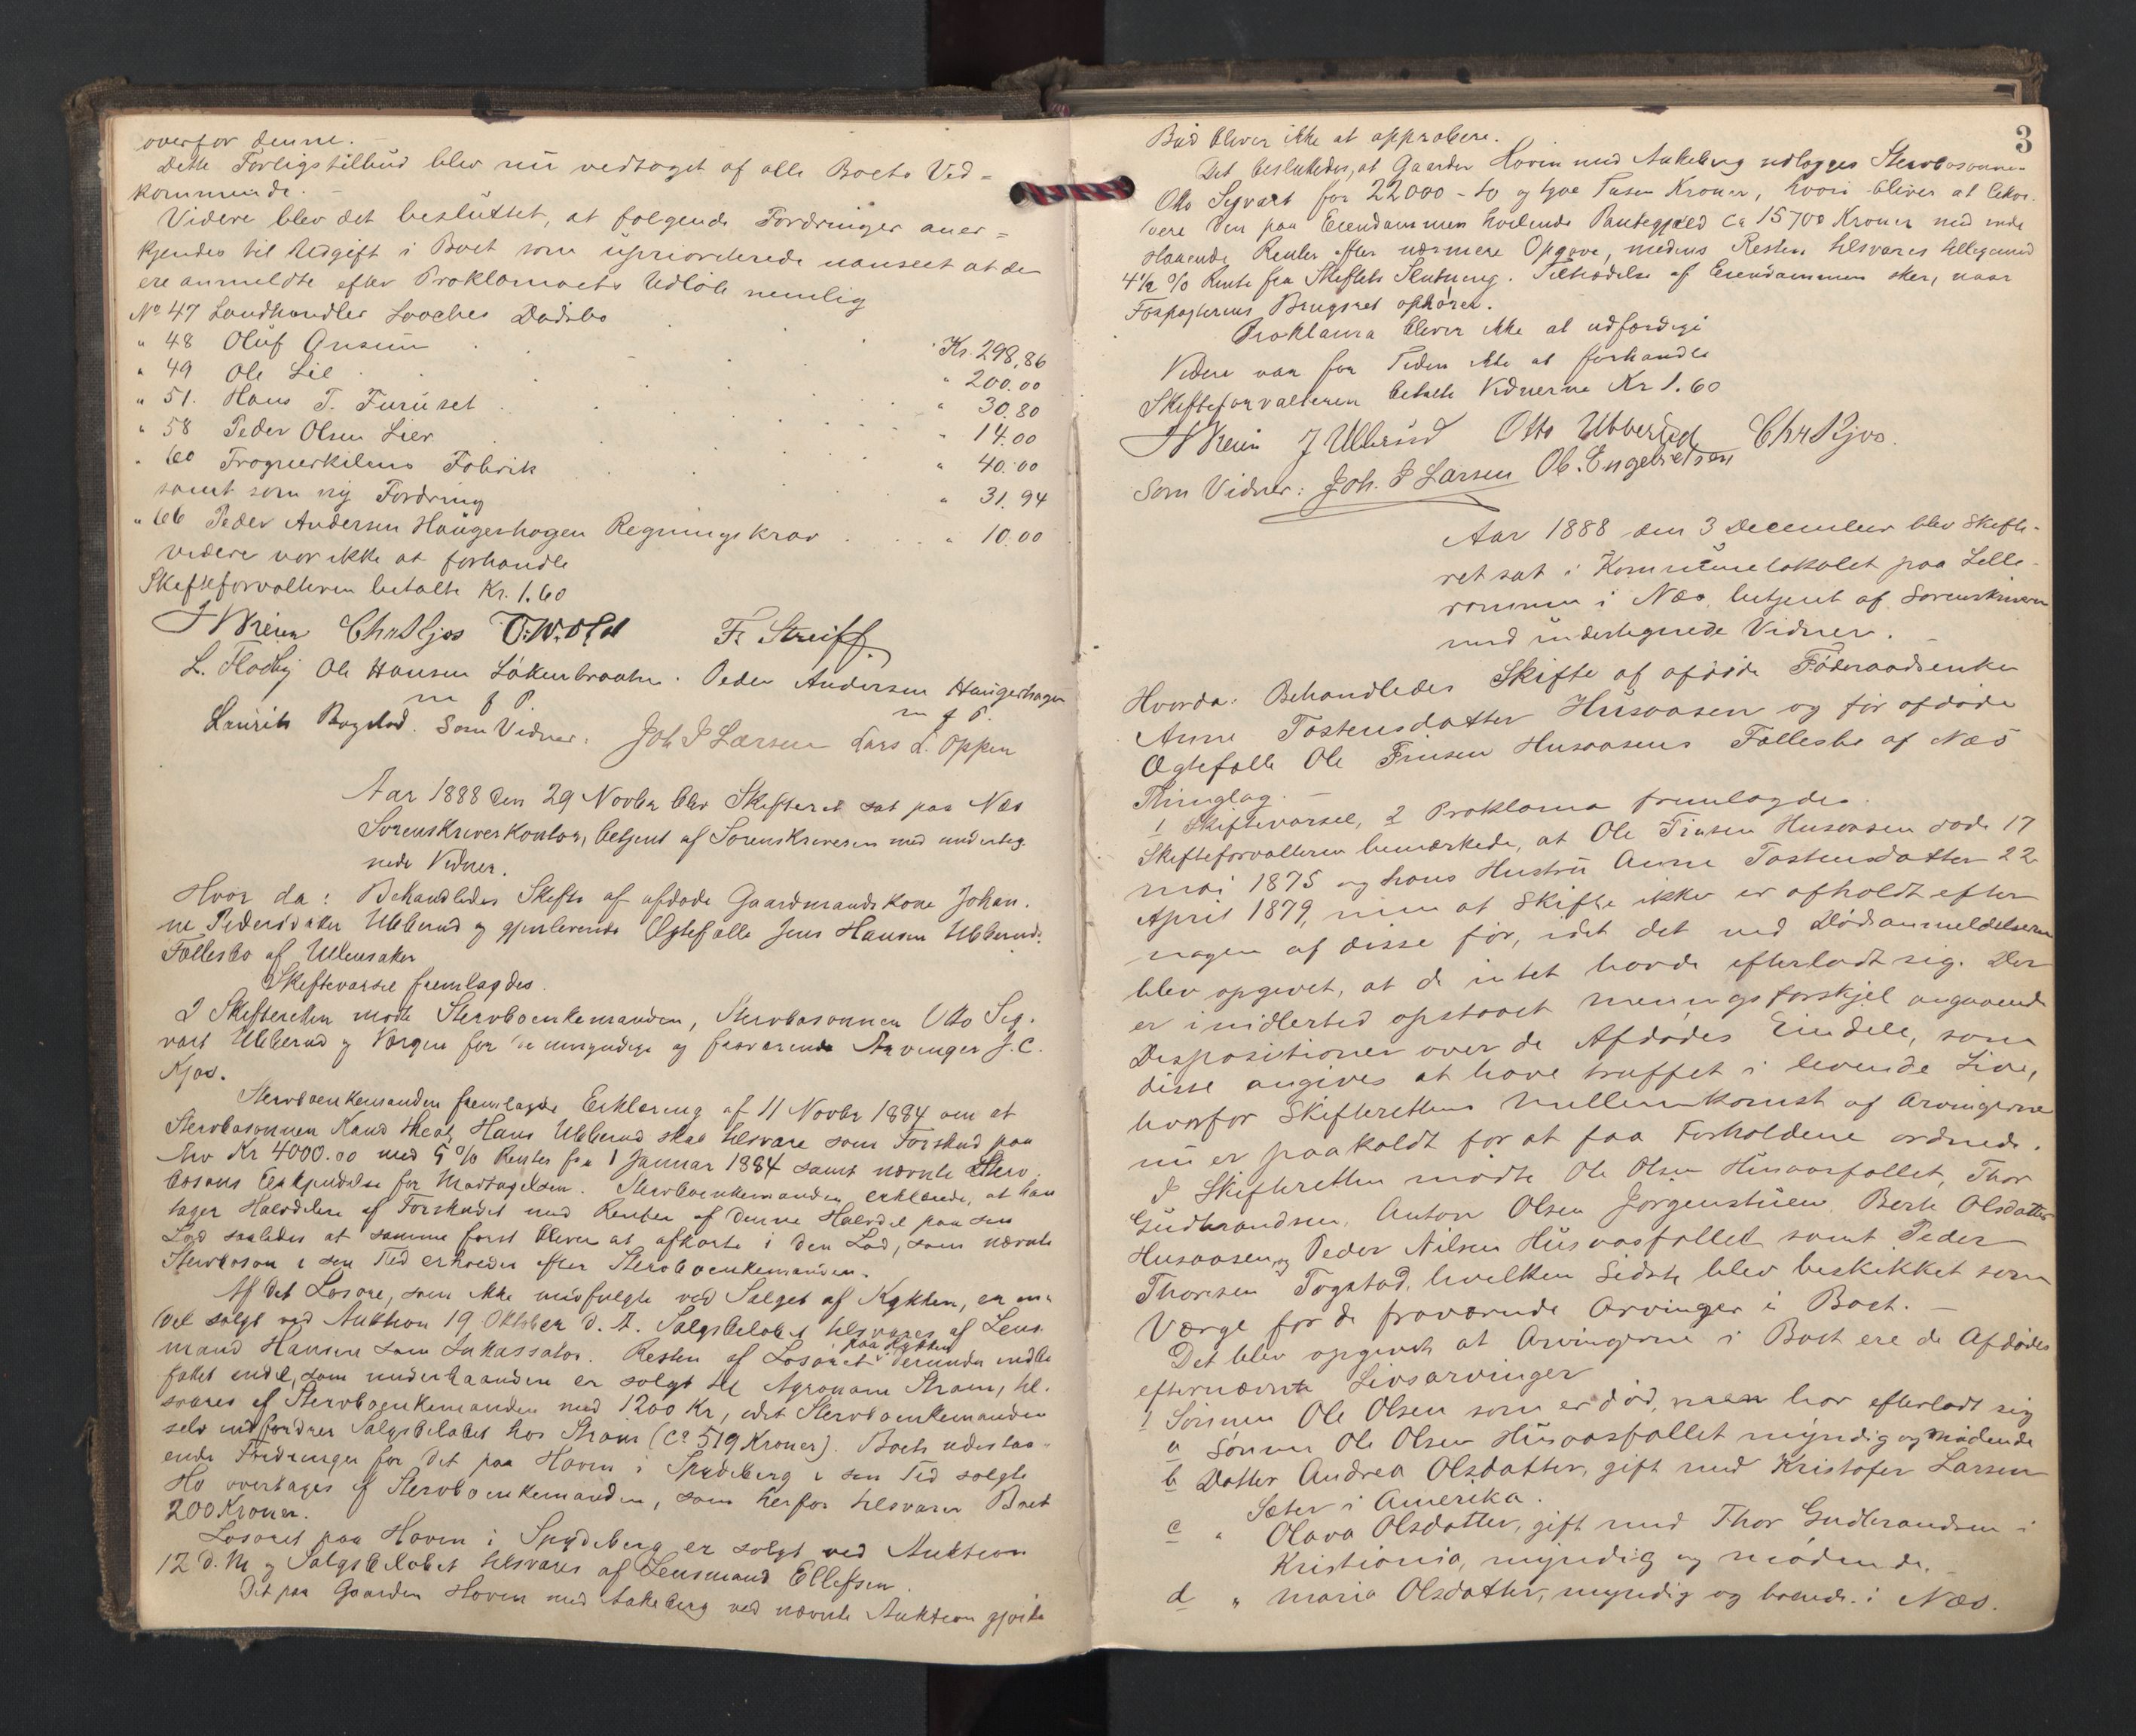 overfor denne.
Dette Forligstilbud blev nu vedtaget af alle Boets Ved=
kommende. -
Videre blev det besluttet, at følgende Fordringer aner=
kjendes til Udgift i Boet som uprioriterede uanseet at de
ere anmeldte efter Proklamaets Udløb nemlig
No 47 Landhandler Dødsbo Kr. 298,86
" 48 Oluf " 200.00
" 49 Ole Lie " 30.80
" 51. Hans T. Furuset " 14.00
" 58 Peder Olsen Lier " 40.00
" 60 Frognerkilens Fabrik " 31.94
samt som ny Fordring
" 66 Peder Andersen Haugerhagen Regningskrav " 10.00
videre var ikke at forhandle
Skifteforvalteren betalte Kr. 1.60
Chr Kjos O.W. Old F. Streiff.
L. Flodby Ole Hansen Løkenbraaten. Peder Andersen Haugerhagen
m f P. m f P.
Laurits Bogstad. Som Vidner. Joh P Larsen Lars L. Oppen
Aar 1888 den 29 Novbr blev Skifteret sat paa Næs
Sorenskriverkontor, betjent af Sorenskriveren med underteg
nede Vidner.
Hvor da: Behandledes Skifte af afdøde Gaardmandskone Johan.
ne Pedersdatter Ubberud og gjenlevende Ægtefælle Jens Hansen Ubberuds
Fællesbo af Ullensaker
Skiftevarsel fremlagdes.
I Skifteretten mødte Stervboenkemanden, Stervbosønnen Otto Sig.
vart Ubberud og Værgen for de umyndige og fraværende Arvinger J. C.
Kjos.
Stervboenkemanden fremlagde Erklæring af 11 Novbr 1884 om at
Stervbosønnen Kand theol Hans Ubberud skal tilsvare som Forskud paa
Arv Kr 4000.00 med 5 % Renter fra 1 Januar 1884 samt nævnte Sterv.
bosøns Erkjendelse for Modtagelsen. Stervboenkemanden erklærede, at han
tager Halvdelen af Forskudet med Renter af denne Halvdel paa sin
Lod saaledes at samme først bliver at afkorte i den Lod, som nævnte
Stervbosøn i sin Tid erholder efter Stervboenkemanden.
Af det Løsøre, som ikke medfulgte ved Salget af Kykken, er en
Del solgt ved Auktion 19 Oktober d. A. Salgsbeløbet tilsvares af Lens
mand Hansen som Inkassator. Resten af Løsøret paa Kykken derunder indbe
fattet endel, som underhaanden er solgt til Agronom Strøm, til.
svares af Stervboenkemanden med 1200 Kr, idet Stervboenkemanden
selv indfordrer Salgsbeløbet hos Strøm (ca 519 Kroner). Boets udestaa=
ende Fordringer for det paa Hoven i Spydeberg i sin Tid solgte
Hø overtages af Stervboenkemanden, som herfor tilsvarer Boet
200 Kroner.
Løsøret paa Hoven i Spydeberg er solgt ved Auktion
12 d. M og Salgsbeløbet tilsvares af Lensmand Ellefsen.
Det paa Gaarden Hoven med Aakeberg ved nævnte Auktion gjorte
3
Bud bliver ikke at approbere.
Det besluttedes, at Gaarden Hoven med Aakeberg udlægges Stervbosønnen
Otto Sigvart for 22000 - to og tyve Tusen Kroner, hvori bliver at likvi.
dere den paa Eiendommen heftende Pantegjæld ca 15700 Kroner med inde
staaende Renter efter nærmere Opgave, medens Resten tilsvares tilligemed
4 1/2 % Rente fra Skiftets Slutning. Tiltrædelse af Eiendommen sker, naar
Forpagterens Brugsret ophører.
Proklama bliver ikke at udfærdige
Videre var for Tiden ikke at forhandle
Skifteforvalteren betalte Vidnerne Kr 1.60
J Ubberud Otto Ubberud Chr Kjos.
Som Vidner: Joh. P Larsen Ob. Engebretsen
Aar 1888 den 3 December blev Skifte-
ret sat i Kommunelokalet paa Lille-
rommen i Næs, betjent af Sorenskriveren
med undertegnede Vidner. -
Hvorda: Behandledes Skifte af afdøde Føderaadsenke
Anne Tostensdatter Husaasen og før afdøde
Ægtefælle Ole Finsen Husaasens Fællesbo af Næs
Thinglag. -
1 Skiftevarsel, 2 Proklama fremlagdes.
Skifteforvalteren bemærkede, at Ole Finsen Husaasen døde 17
mai 1875 og hans Hustru Anne Tostensdatter 22
April 1879, men at Skifte ikke er afholdt efter
nogen af disse før, idet det ved Dødsanmeldelserne
blev opgivet, at de intet havde efterladt sig. Der
er imidlertid opstaaet meningsforskjel angaaende
Dispositioner over de Afdødes Eiendele, som
disse angives at have truffet i levende Live,
hvorfor Skifterettens mellemkomst af Arvingerne
nu er paakaldt for at faa Forholdene ordnede.
I Skifteretten mødte Ole Olsen Husaasfallet, Thor
Gudbrandsen, Anton Olsen Jørgenstuen, Berte Olsdatter
Husaasen, og Peder Nilsen Husaasfallet samt Peder
Thoresen Togstad, hvilken Sidste blev beskikket som
Værge for de fraværende Arvinger i Boet. -
Det blev opgivet at Arvingerne i Boet ere de Afdødes
efternævnte Livsarvinger
1 Sønnen Ole Olsen som er død, men har efterladt sig
a Sønnen Ole Olsen Husaasfallet myndig og mødende
b Datter Andrea Olsdatter, gift med Kristofer Larsen
Sæter i Amerika.
c " Olava Olsdatter, gift med Thor Gudbrandsen i
Kristiania, myndig og mødende.
d " Maria Olsdatter, myndig og boende i Næs.